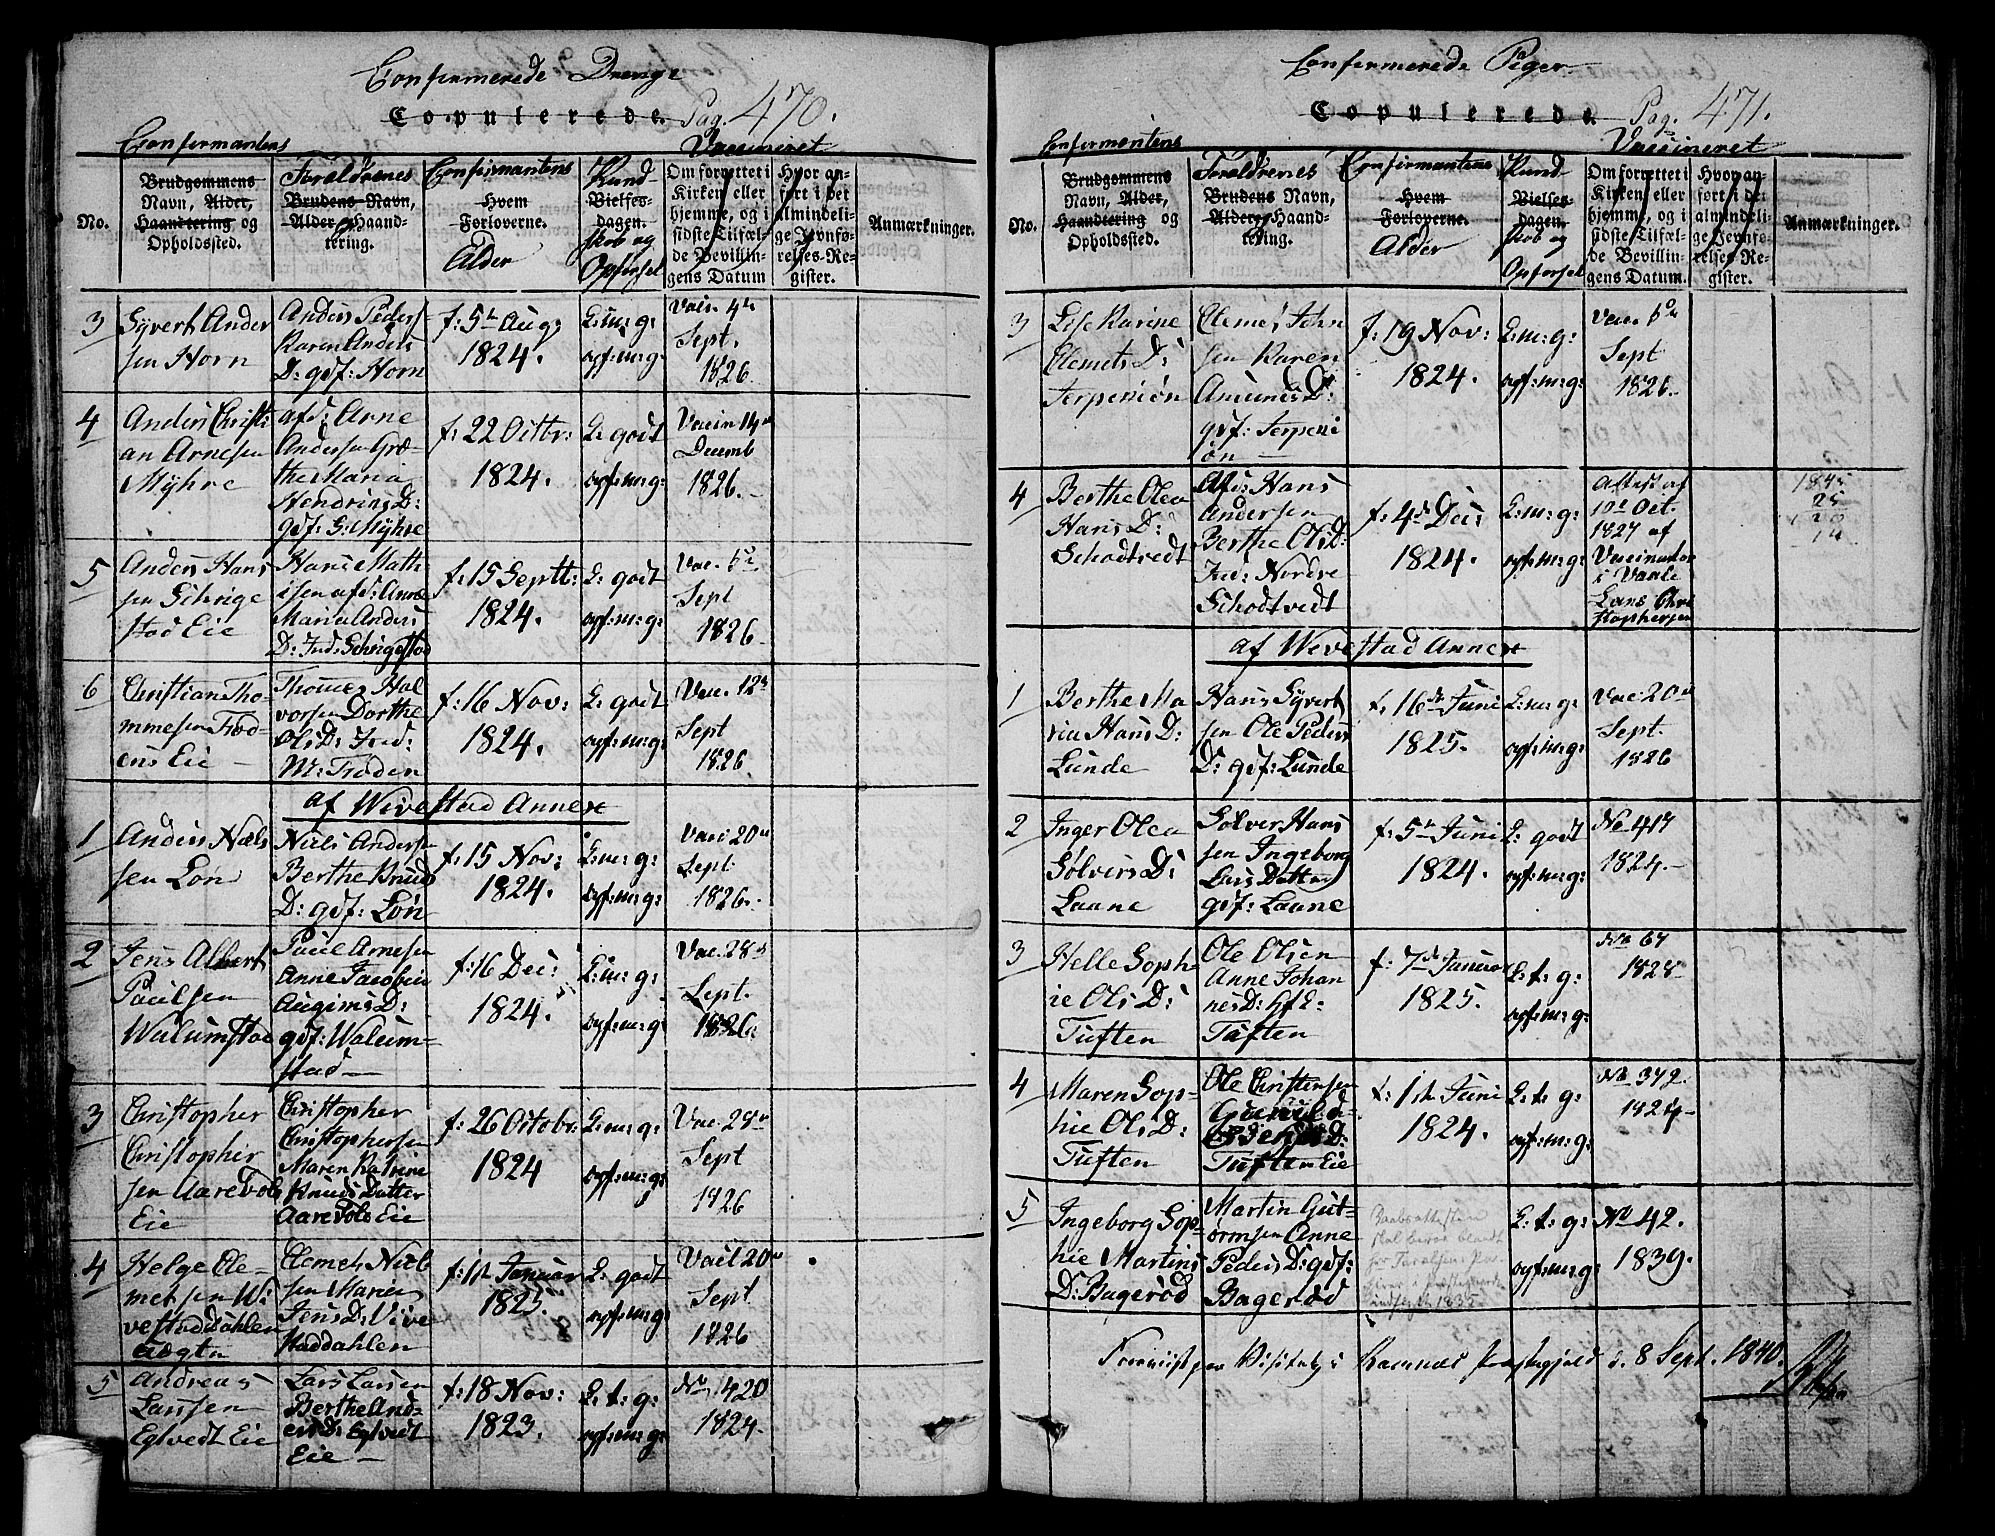 Confirmerede Drenge
Copulerede. Pag. 470.
Confirmantens
Vaccineret
No.
Brudgommens
Navn, Alder,
Haandtering og
Opholdssted.
Forældrenes
Brudens Navn,
Alder, Haand-
tering.
Confirmantens
Hvem
Forloverne.
Alder
Kund-
Vielses-
dagen.
skab og
Opførsel
Om forrettet i
Kirken eller
hjemme, og i
sidste Tilfæl-
de Bevillin-
gens Datum
Hvor an-
ført i det
almindeli-
ge Jevnfø-
relses-Re-
gister.
Anmærkninger.
3
Syvert Ander
sen Horn
Anders Peders-
Karen Anders
D: gdf: Horn
f: 5te Aug
1824.
K: m: g:
opf: m: g:
Vacc. 4de
Sept.
1826.
4
Anders Christi-
an Arnesen
Myhre
afd: Arne
Andersen Græ-
the Maria
Hendrics D:
gdf: S: Myhre
f: 22 Octbr:
1824.
K: godt
opf: m: g:
Vaccin 14de
Decemb
1826.
5
Anders Hans
sen Schrige
stad Eie
Hans Math
isen afd: Anne
Maria Anders
D: Inds Schrigestad
f: 15 Septt:
1824.
K: godt
opf: m: g:
Vac. 5te
Sept
1826
6
Christian Tho-
mmesen Frod-
ens Eie
Thomes Hal
vorsen Dorthe
Ols D: Ind:
M: Froden
f: 16 Nov:
1824.
K: godt
opf: m: g:
Vac. 12te
Sept
1826.
af Wivestad Annex
1
Anders Niels
sen Løn
Niels Anders-
Berthe Knud
D: gdf: Løn
f: 15 Nov:
1824.
K: m: g:
opf: m: g:
Vacc 20de
Sept
1826.
2
Jens Albert
Paulsen
Walumstad
Paul Arnesen
Anne Jacobin
Augims D:
gdf: Walum-
stad
f: 16 Dec:
1824.
K: m: g:
opf: m: g:
Vac. 28de
Sept.
1826.
3
Christopher
Christopher
sen Aarevols
Eie
Christopher
Christophersen
Maren Katrine
Knuds Datter
Aarevols Eie
f: 26 Octobr:
1824
K: m: g:
opf: m: g:
Vac. 28de
Sept
1826
4
Helge Cle-
metsen Wi
vestaddahlen
Clemet Niel
sen Maren
Jens D: Vive
staddahlen
f: 1ste Januar
1825.
K: godt
opf: m: g:
Vacc 20de
Sept
1826
5
Andreas
Larssen
Eglvedt Eie
Lars Larsen
Berthe And-
ers D: Eglvedt
Eie
f: 18 Nov:
1823.
K: t: g:
opf: m: g:
No 420
1824.
Confirmerede Piger
Copulerede. Pag. 471.
Confirmantens
Vaccineret
No.
Brudgommens
Navn, Alder,
Haandtering og
Opholdssted.
Forældrenes
Brudens Navn,
Alder, Haand-
tering.
Confirmantens
Hvem
Forloverne.
Alder
Kund-
Vielses-
dagen.
skab og
Opførsel
Om forrettet i
Kirken eller
hjemme, og i
sidste Tilfæl-
de Bevillin-
gens Datum.
Hvor an-
ført i det
almindeli-
ge Jevnfø-
relses-Re-
gister.
Anmærkninger.
3
Lise Karine
Clemets D:
Serpeniøn
Clemet John
sen Karen
Amunds D:
gdf: Serpeni
øn
f: 19 Nov:
1824.
K: m: g:
opf: m: g:
Vacc. 5te
Sept
1826.
4
Berthe Olea
Hans D:
Schodtvedt
Afd: Hans
Andersen
Berthe Ols D:
Ind: Nordre
Schodtvedt
f: 4de Dec:
1824.
K: m: g:
opf: m: g:
Attest af
10de Oct.
1827 af
Vaccinator
i Vaale
Lars Chri
stophersen
1845
25
af Wevestad Annex
1
Berthe Ma
ria Hans D:
Lunde
Hans Syvert
sen Ole Peders
D: gdf: Lunde
f: 16de Juni
1825.
K: m: g:
opf: m: g:
Vac. 20de
Sept.
1826
2
Inger Olea
Sølvers D:
Laane
Sølver Hans
sen Ingeborg
Lars Datter
gdf: Laane
f: 5te Juni
1824.
K: godt
opf: m: g:
No 417
1824.
3
Helle Soph-
ie Ols D:
Tuften
Ole Olsen
Anne Johan
nes D: Hf E-
Tuften
f: 7de Januar
1825.
K: t: g:
opf: m: g:
No 67
1828
4
Maren Sop-
hie Ols D:
Tuften
Ole Christensen
Gunild
Tuften Eie
f: 1ste Juni
1824.
K: t: g:
opf: m: g:
No 342.
1824
5
Ingeborg Sop-
hie Martins
D: Bagerød
Martin Gut-
ormsen Anne
Peders D: gdf:
Bagerød
Daabsattesten
skal være blandt
1835.
K: t: g:
opf: m: g:
No 42.
1839.
Foreviist paa Visitats i Ramnæs Præstegjeld d. 8 Sept. 1840.